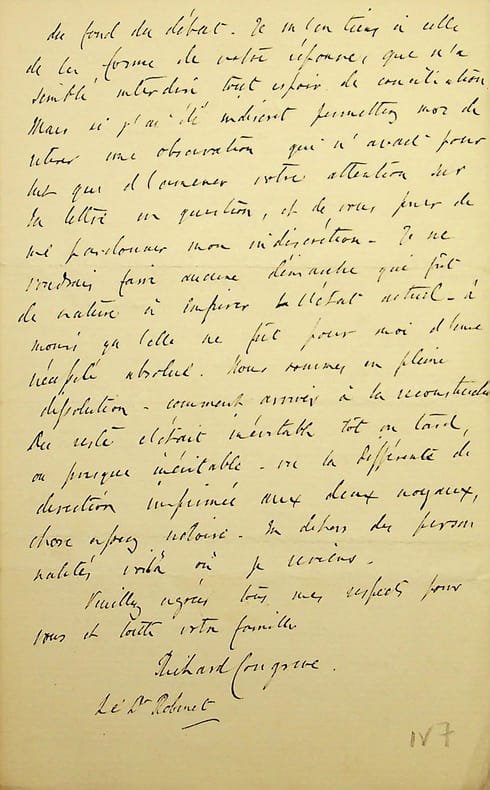 du fond du débat. Je m'en tiens à celle
de la forme de votre réponse, que m'a
semblé interdire tout espoir de conciliation.
Mais si j'ai été indiscret permettez moi de
retirer une observation qui n'avait pour
but que d'amener votre attention sur
la lettre en question, et de vous prier de
me pardonner mon indiscrétion - Je ne
voudrais faire aucune démarche qui fût
de nature à empirer l'état actuel - à
moins qu'elle ne fût pour moi d'une
nécessité absolue. Nous sommes en pleine
dissolution - comment arriver à la reconstruction
Du reste c'était inévitable tôt ou tard,
ou presque inévitable - vu la différence de
direction imprimée aux deux noyaux,
chose assez notoire. En dehors des person
nalités voilà où je reviens.
Veuillez agréer tous mes respects pour
vous et toute votre famille
Richard Congreve.
Le Dr Robinet
IV 7